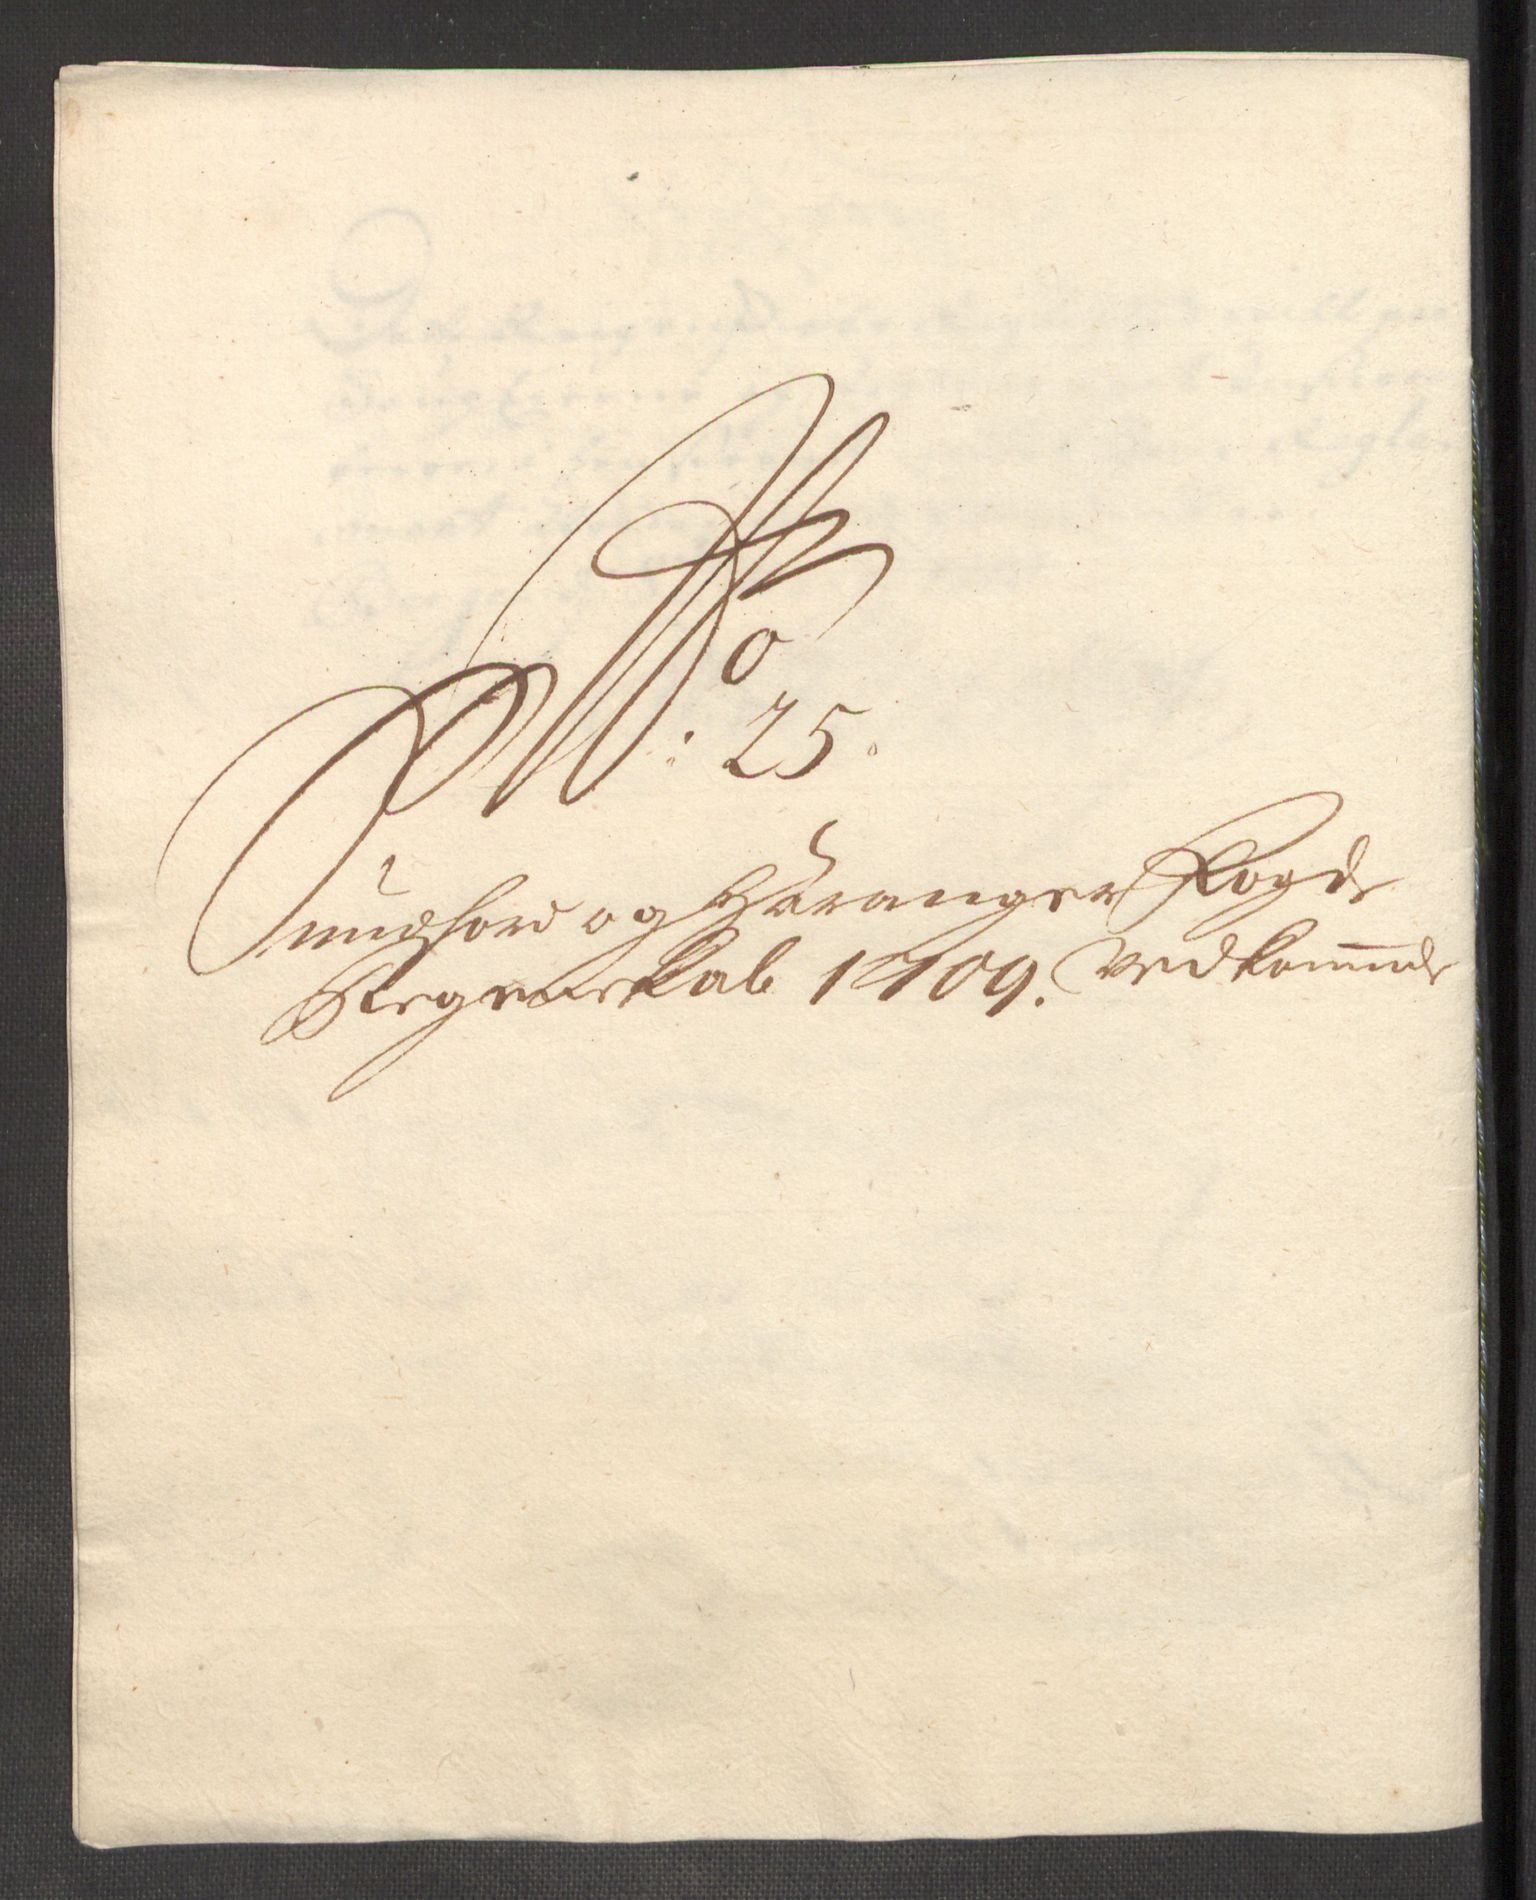 No
: 25.
Sundhord og Haranger Fogde
Regenskab 1709. Vedkommde